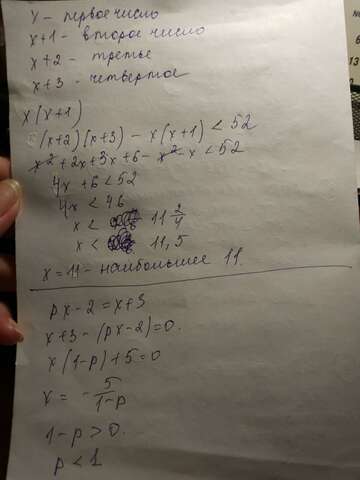 x - первое число
x+1 - второе число
x+2 - третье
x+3 - четвертое
x(x+1)
(x+2)(x+3) - x(x+1) < 52
x²+2x+3x+6-x²-x < 52
4x+6<52
4x < 46
x < 11 2/4
x < 11,5
x = 11 - наибольшее 11.
px-2 = x+3
x+3-(px-2)=0.
x(1-p)+5=0
x = - 5/(1-p)
1-p>0.
p<1